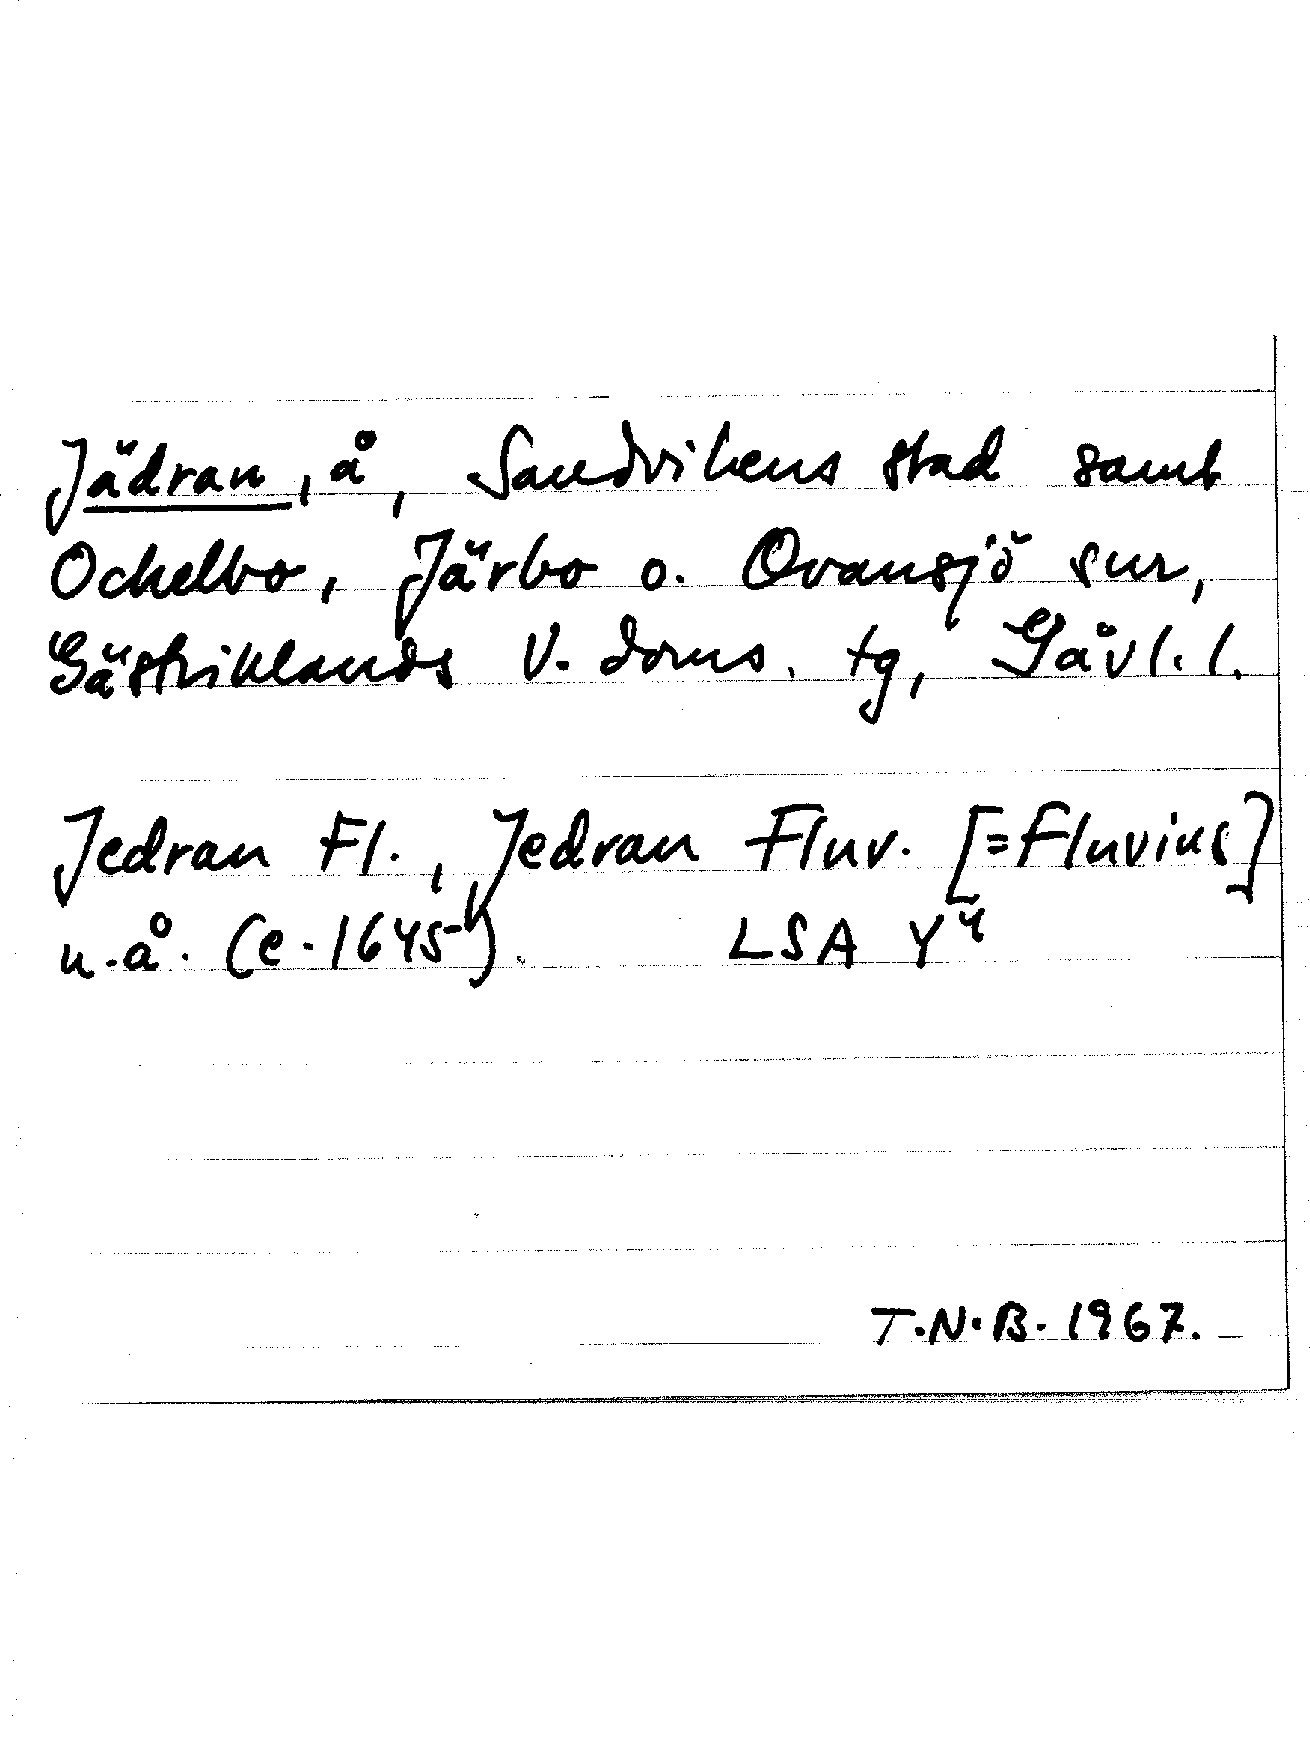 Jädran, å, Sandvikens stad samt
Ockelbo, Järbo o. Ovansjö snr,
Gästriklands V. doms. tg, Gävl. l.
Jedran Fl., Jedran Fluv. [=Fluvius]
u.å. (e. 1645). LSA Y 4
T.N.B. 1967.